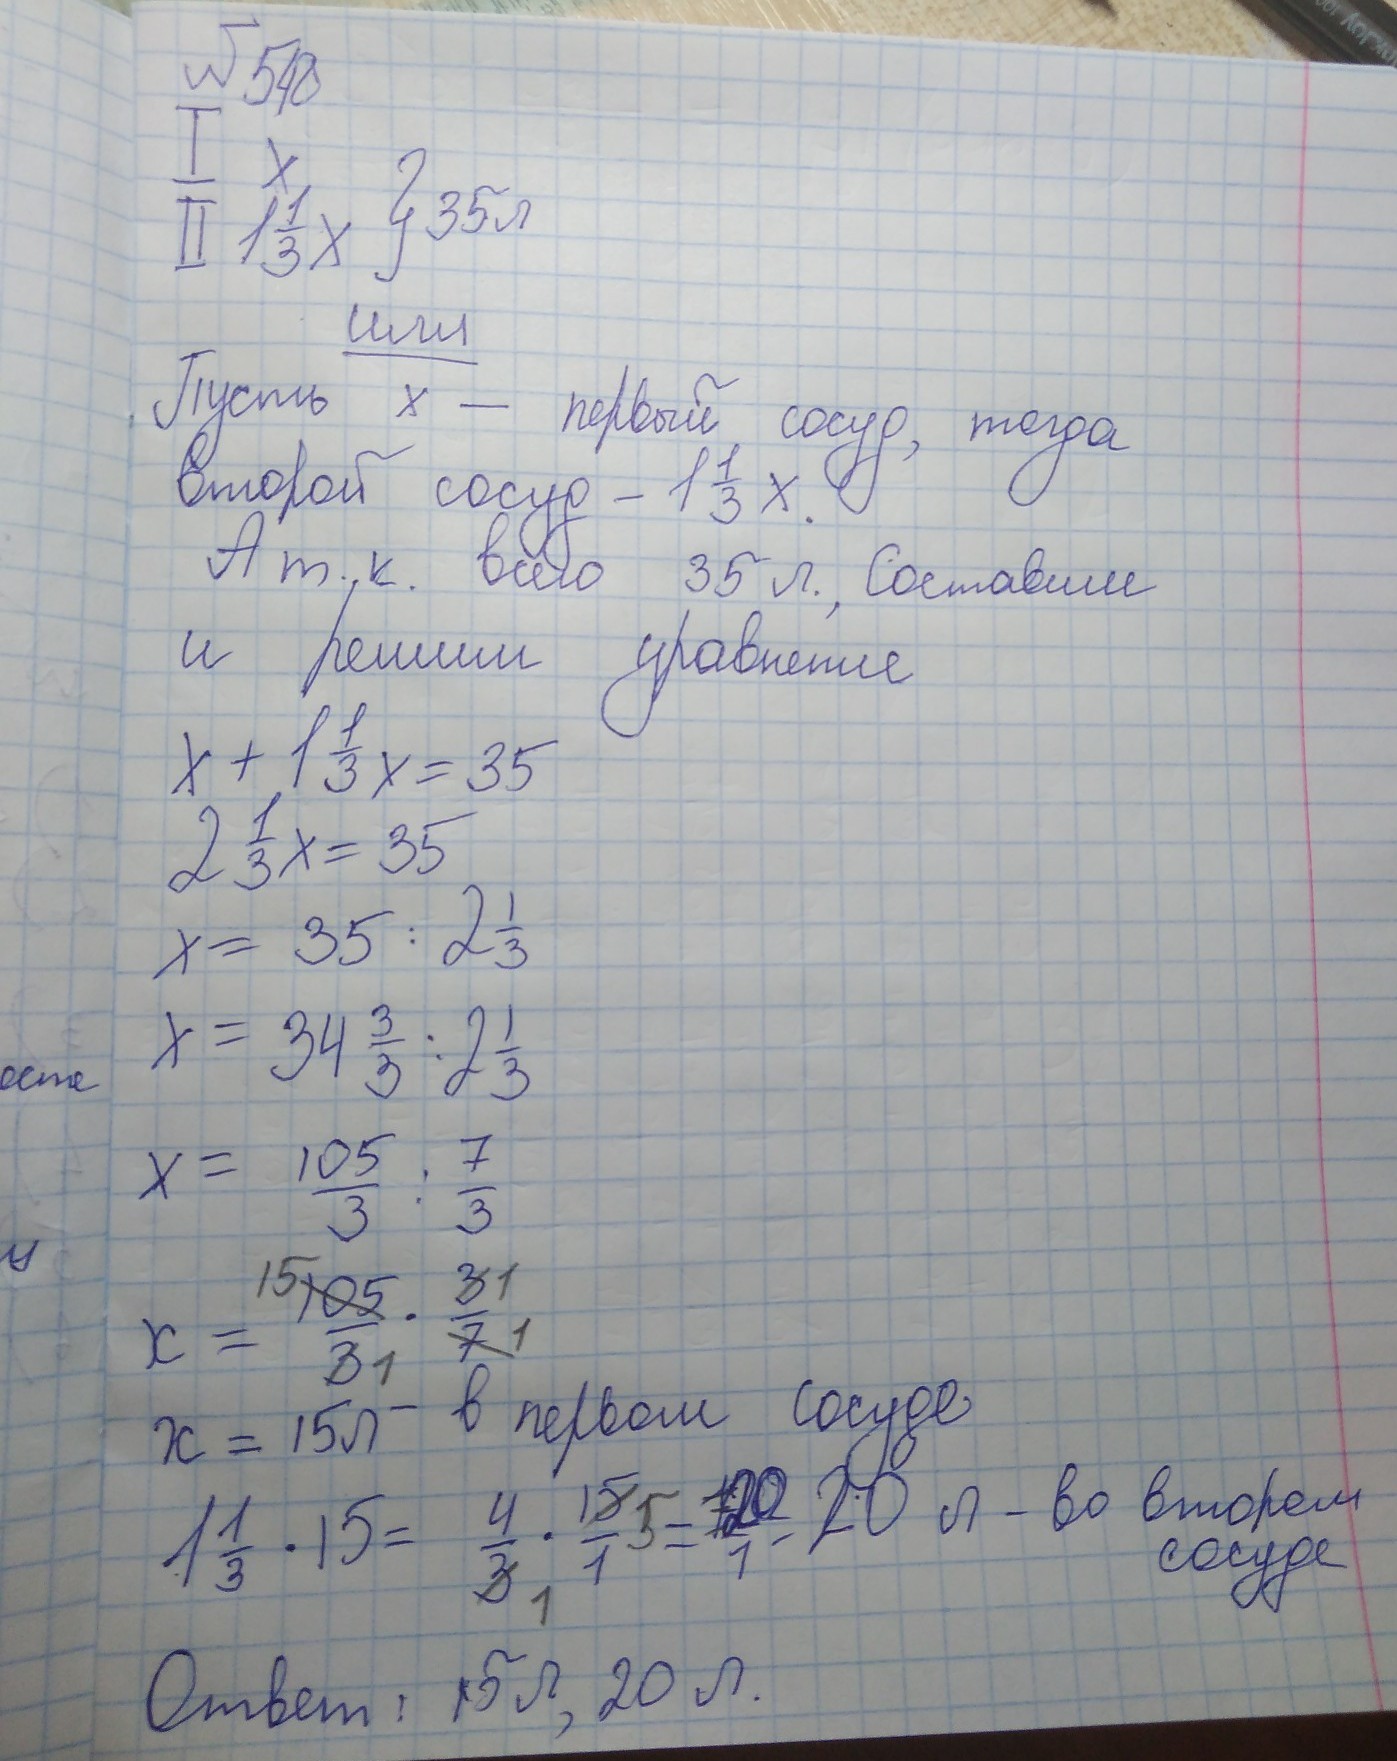 №548
I x
II 1 1/3 x } 35л
или
Пусть x — первый сосуд, тогда
второй сосуд - 1 1/3 x.
А т.к. всего 35 л., составим
и решим уравнение
x + 1 1/3 x = 35
2 1/3 x = 35
x = 35 : 2 1/3
x = 34 3/3 : 2 1/3
x = 105/3 : 7/3
x = 15 105/3 1 · 3 1/7 1
x = 15л - в первом сосуде
1 1/3 · 15 = 4/3 1 · 15 5/1 = 20/1 = 20 л - во втором
сосуде
Ответ: 15л, 20 л.